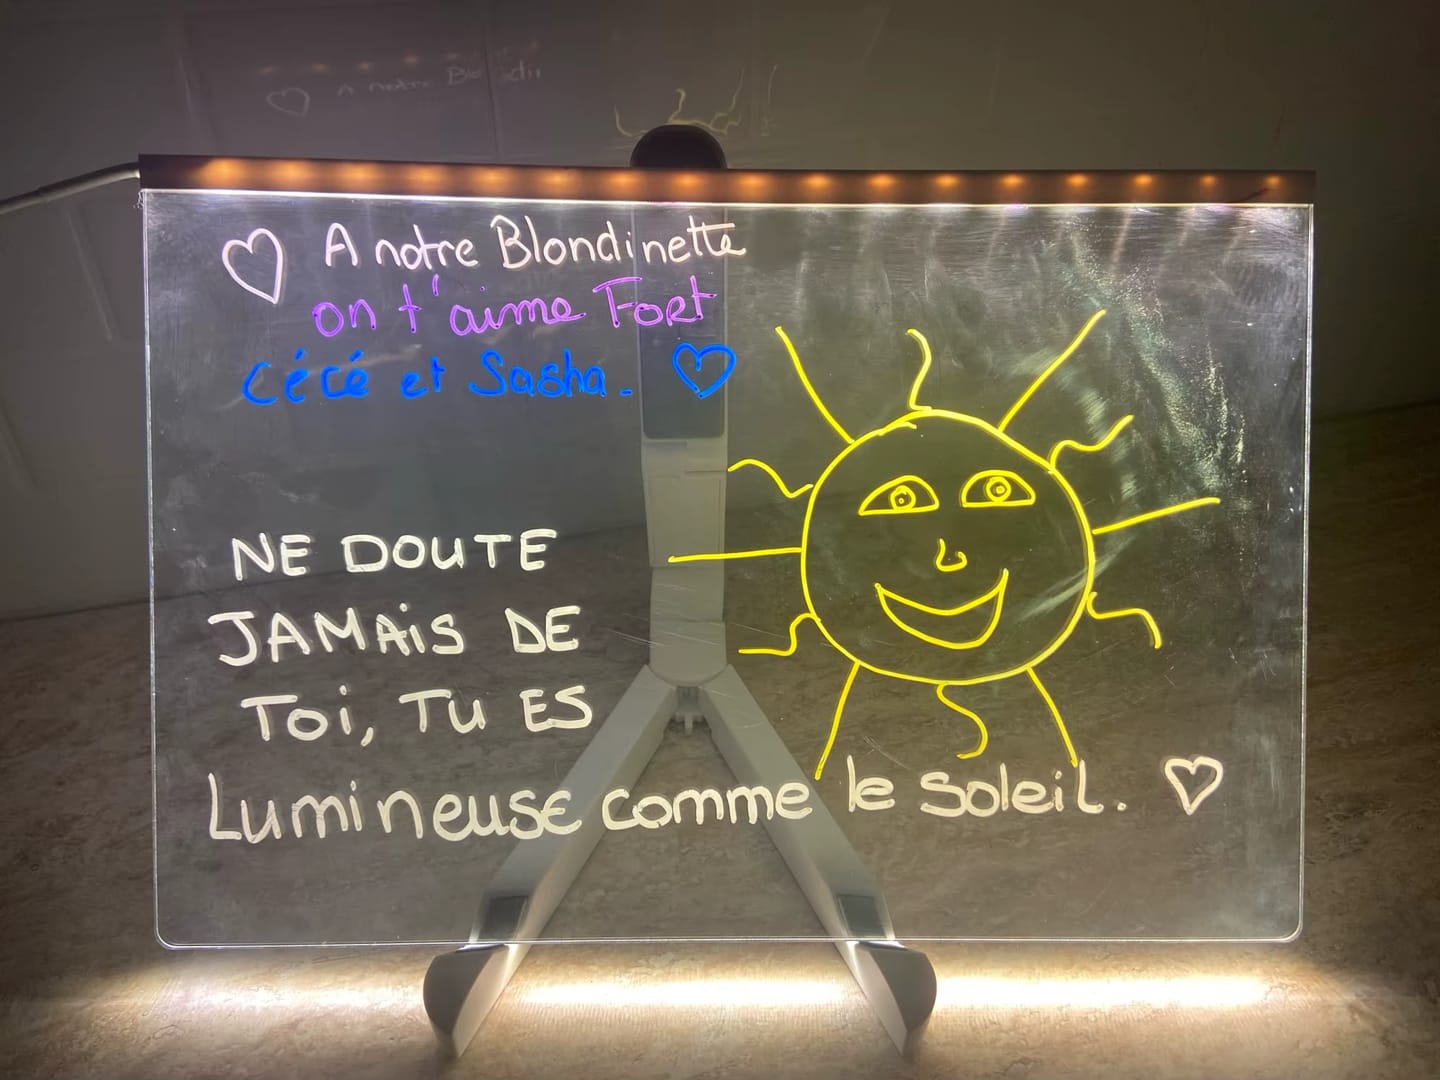 A notre Blondinette
on t'aime Fort
Cécé et Sasha.
NE DOUTE
JAMAiS DE
Toi, TU ES
Lumineuse comme le soleil.